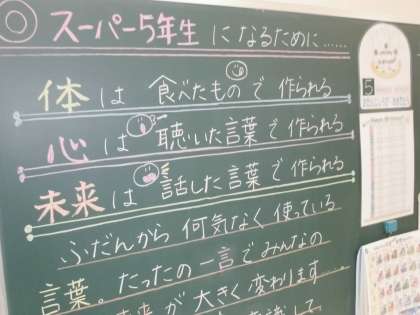 ◎スーパー5年生になるために……
体は食べたもので作られる
心は聴いた言葉で作られる
未来は話した言葉で作られる
ふだんから何気なく使っている
言葉。たったの一言でみんなの
未来が大きく変わります……
意識して
5